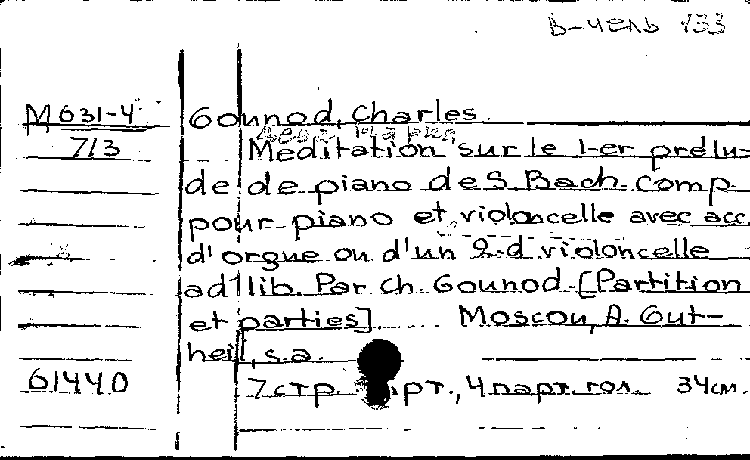 В-чель 133
М 631-4
713
61440
Gounod, Charles.
Meditation sur le 1-er prélu-
de de piano de S. Bach. Comp
pour piano et violoncelle avec acc.
d'orgue ou d'un 2-d violoncelle
ad lib. Par Ch. Gounod. [Partition
et parties]. Moscou, A. Gut-
heil, s.a.
7 стр. парт., 4 парт. гол. 34 см.